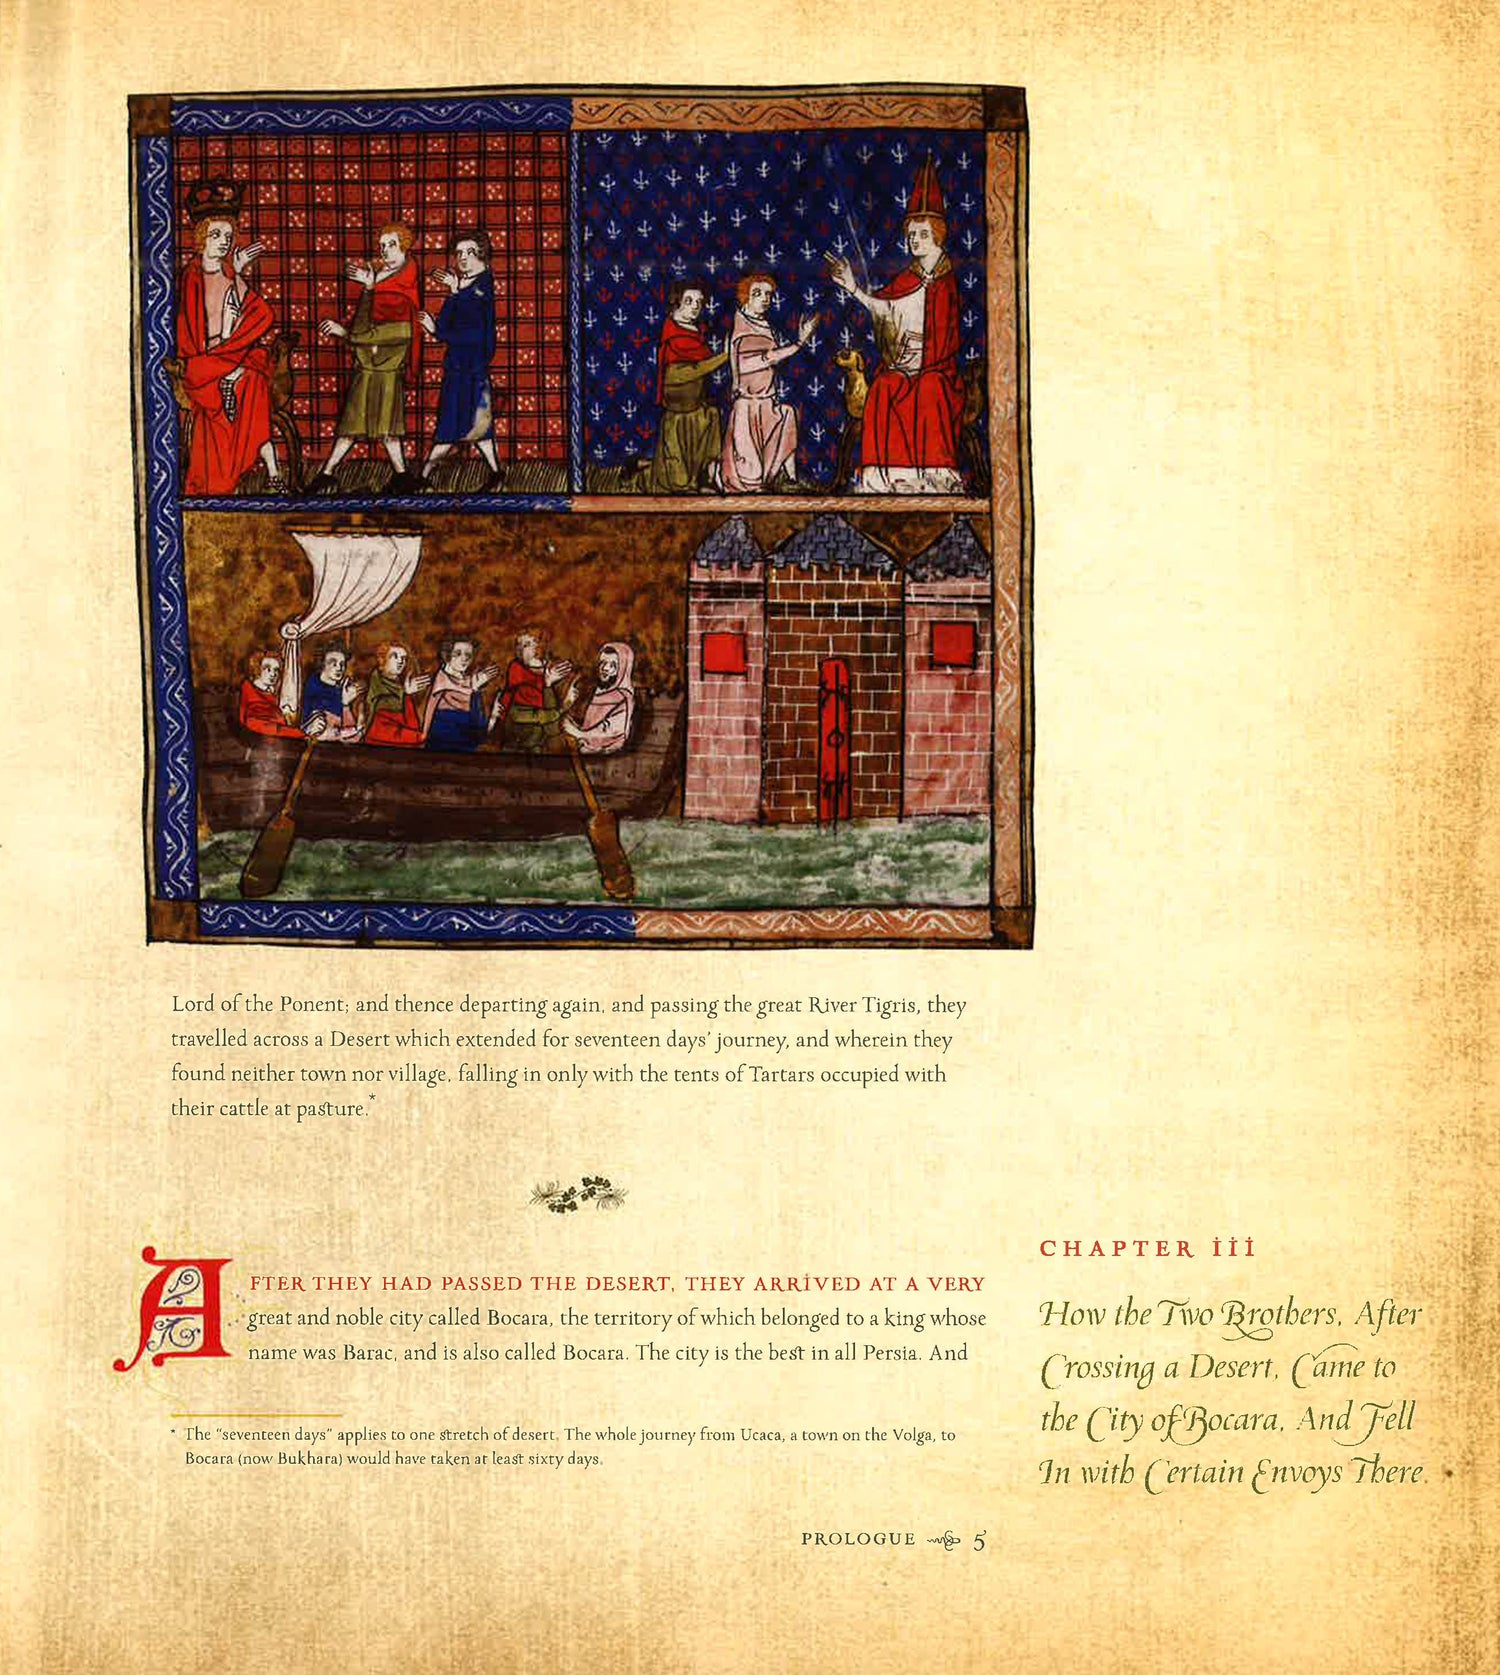 Lord of the Ponent; and thence departing again, and passing the great River Tigris, they
travelled across a Desert which extended for seventeen days' journey, and wherein they
found neither town nor village, falling in only with the tents of Tartars occupied with
their cattle at pasture.*
AFTER THEY HAD PASSED THE DESERT, THEY ARRIVED AT A VERY
great and noble city called Bocara, the territory of which belonged to a king whose
name was Barac, and is also called Bocara. The city is the best in all Persia. And
CHAPTER iii
How the Two Brothers, After
Crossing a Desert, Came to
the City of Bocara, And Fell
In with Certain Envoys There.
* The "seventeen days" applies to one stretch of desert. The whole journey from Ucaca, a town on the Volga, to
Bocara (now Bukhara) would have taken at least sixty days.
PROLOGUE 5